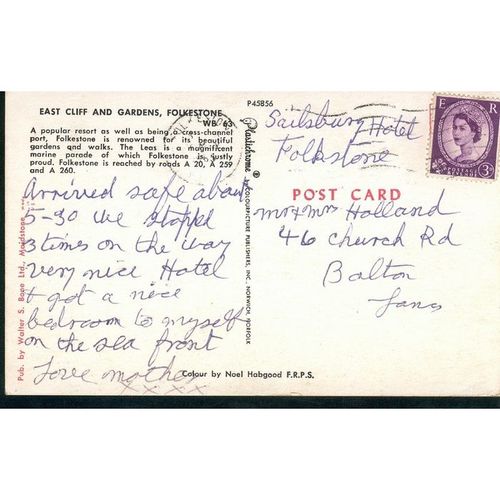 P45856
EAST CLIFF AND GARDENS, FOLKESTONE
WB 63
A popular resort as well as being a cross-channel
port, Folkestone is renowned for its beautiful
gardens and walks. The Leas is a magnificent
marine parade of which Folkestone is justly
proud. Folkestone is reached by roads A 20, A 259
and A 260.
Arrived safe about
5-30 we stopped
3 times on the way
very nice Hotel
& got a nice
bedroom to myself
on the sea front
Love mother
x x x x
Pub. by Walter S. Bane Ltd., Maidstone
Plastichrome ® by COLOURPICTURE PUBLISHERS, INC. NORWICH, NORFOLK
Colour by Noel Habgood F.R.P.S.
Sailsbury Hotel
Folkstone
POST CARD
mr & mrs Holland
46 church Rd
Bolton
Lancs
E R
POSTAGE
3D